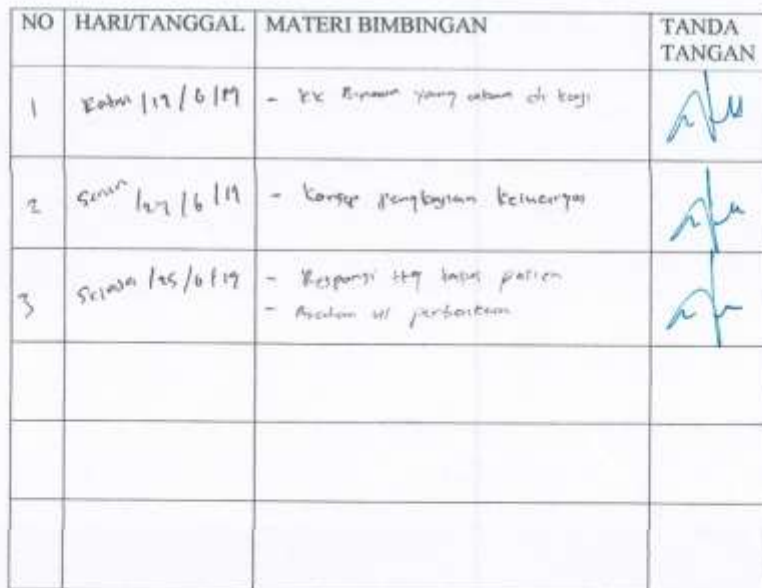 NO HARI/TANGGAL MATERI BIMBINGAN TANDA
TANGAN
1 Rabu /19/6/19 - KK Binaan yang akan di kaji
2 Senin /24/6/19 - Konsep pengkajian keluarga
3 Selasa /25/6/19 - Responsi ttg kasus pasien
- perbaikan